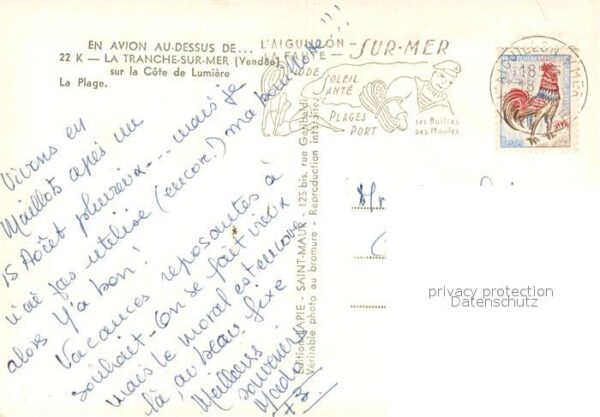 EN AVION AU-DESSUS DE...
22 K — LA TRANCHE-SUR-MER (Vendée)
sur la Côte de Lumière
La Plage.
L'AIGUILLON
LA FAUTE - SUR-MER
SOLEIL
SANTÉ
PLAGES
PORT
ses Huîtres
ses Moules
Vivons en
Maillots après un
15 Août pluvieux... mais je
n'ai pas utilisé (encore!) ma bouillotte!!!
alors Y'a bon!
Vacances reposantes à
souhait - On se fait vieux
mais le moral est encore
là, au beau fixe
Meilleurs souvenirs
Edition LAPIE - SAINT-MAUR - 125 bis, rue Garibaldi
Véritable photo au bromure - Reproduction interdite
privacy protection
Datenschutz